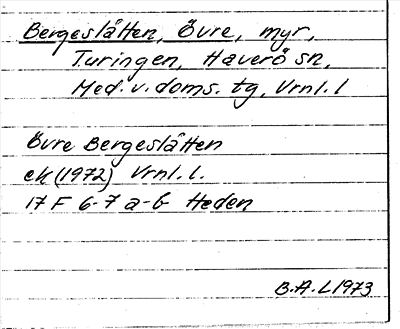 Bergeslåtten, Övre, myr,
Turingen, Haverö sn,
Med. v. doms. tg, Vrnl. l
Övre Bergeslåtten
ek (1972) Vrnl. l.
17 F 6-7 a-b Heden
B.A.L 1973